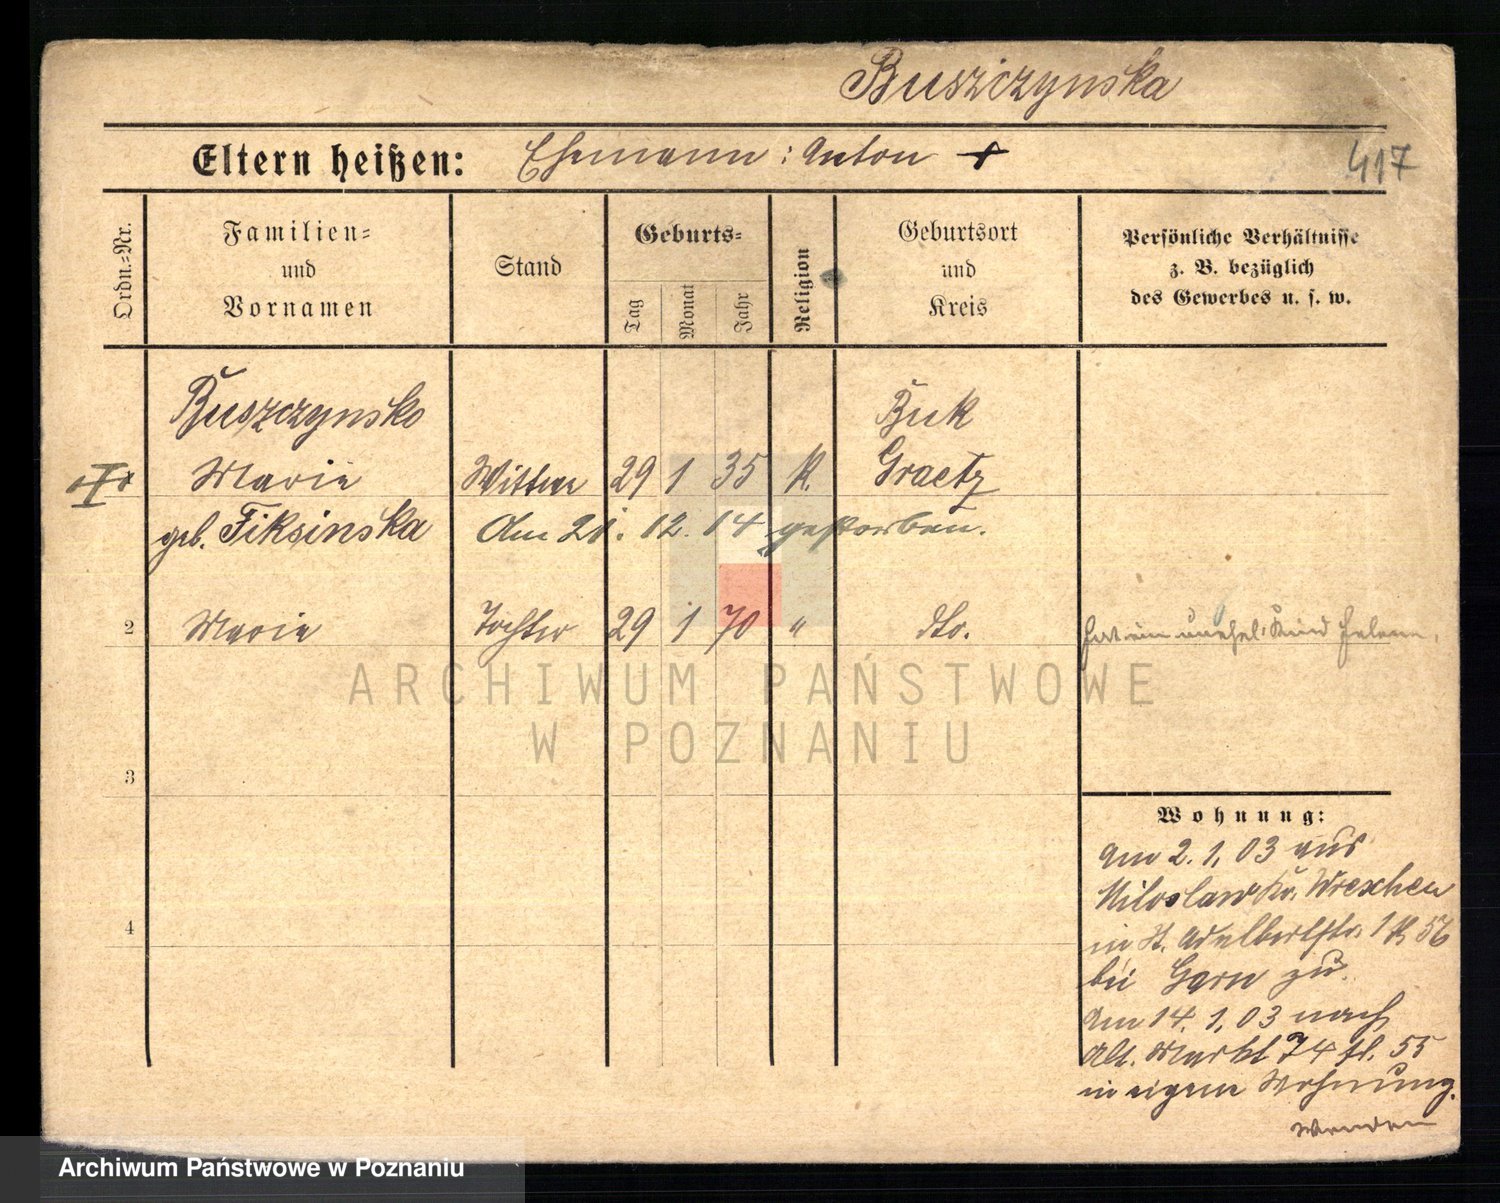 Buszczynska
Eltern heißen: Ehemann: Anton +
417
Ordn.-Nr.
Familien-
und
Vornamen
Stand
Geburts-
Tag
Monat
Jahr
Religion
Geburtsort
und
Kreis
Persönliche Verhältnisse
z. B. bezüglich
des Gewerbes u. s. w.
Buszczynska
Buk
Marie Wittwe 29 1 35 K. Graetz
geb. Fiksinska Am 21. 12. 04 gestorben.
2 Marie Tochter 29 1 70 " dto. hat ein unehel. Kind Helene.
ARCHIWUM PAŃSTWOWE
W POZNANIU
3
4
Wohnung:
Am 2. 1. 03 aus
Miloslaw Kr. Wreschen
in St. Adalbertstr. 1 K 56
bei Garn zu.
Am 14. 1. 03 nach
Alt. Markt 74 fl. 55
in eigene Wohnung.
Wenden
Archiwum Państwowe w Poznaniu